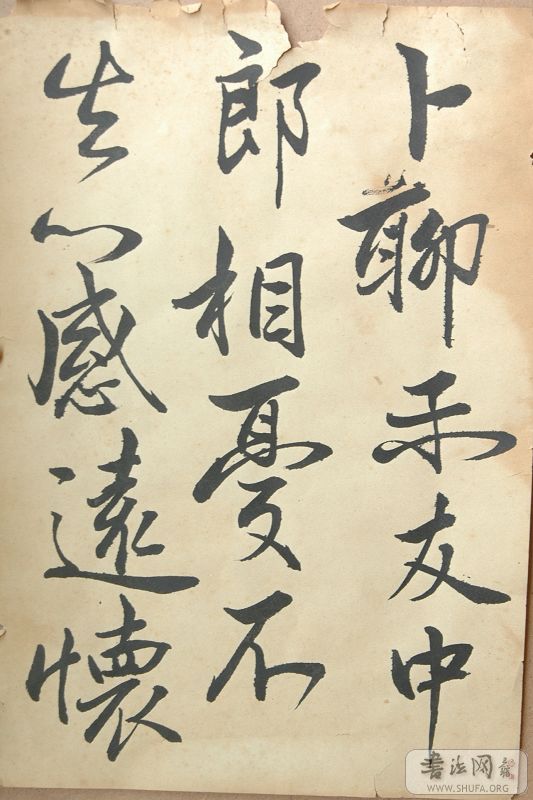 卜聊示友中
郎相憂不
去心感遠懷
書法网
WWW.SHUFA.ORG